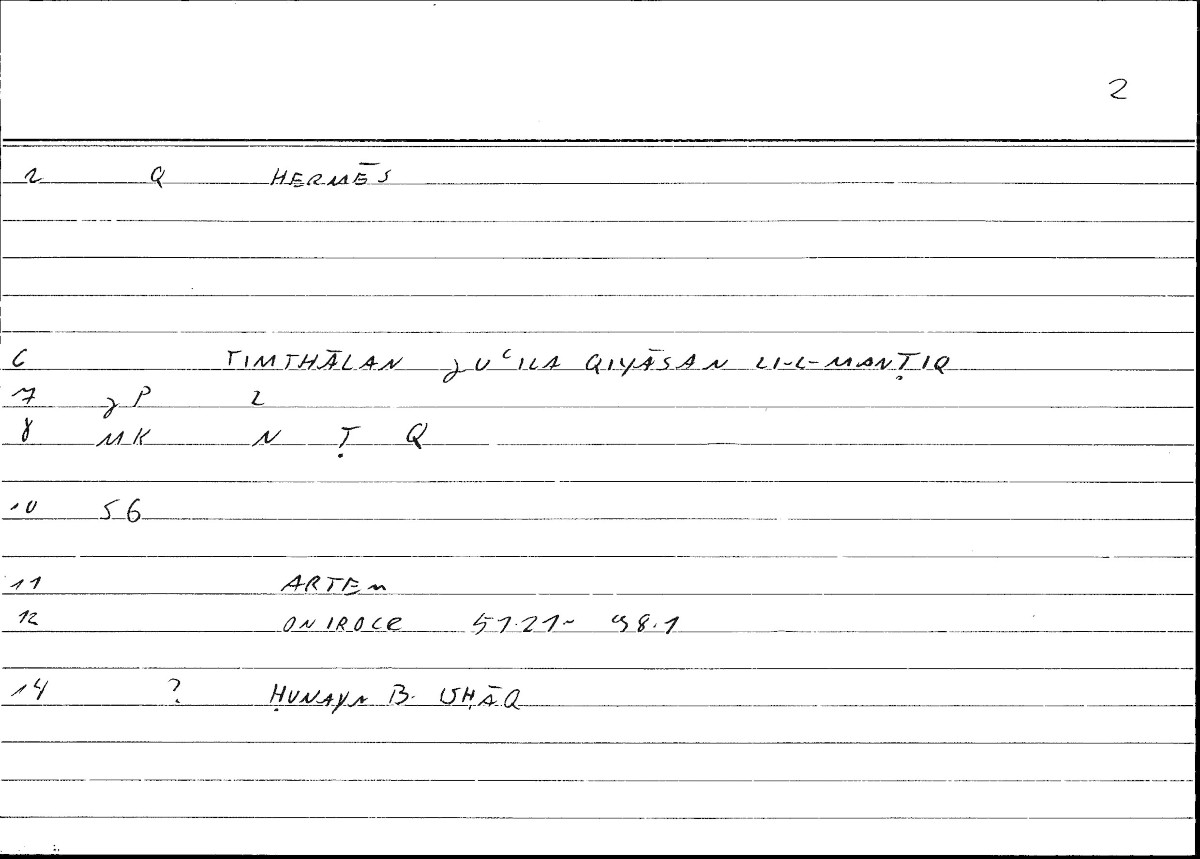 2
2 Q HERMĒS
6 TIMTHĀLAN ʒUʿILA QIYĀSAN LI-L-MANṬIQ
7 ʒP 2
8 MK N Ṭ Q
10 56
11 ARTEM
12 ONIROCR 51.21- 98.1
14 ? ḤUNAYN B. ISḤĀQ